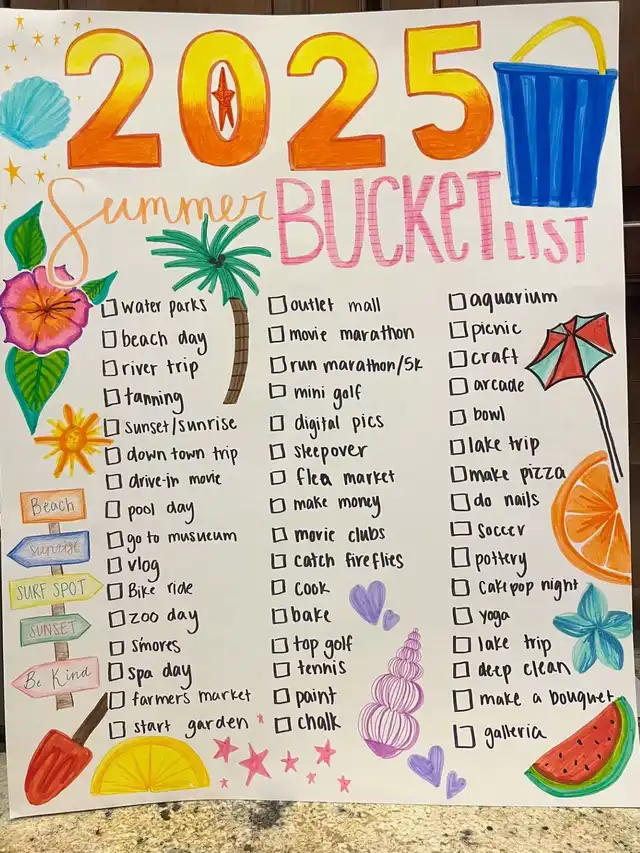 2025
Summer BUCKET LIST
water parks
beach day
river trip
tanning
sunset/sunrise
down town trip
drive-in movie
pool day
go to musueum
vlog
Bike ride
zoo day
s'mores
spa day
farmer's market
start garden
outlet mall
movie marathon
run marathon/5k
mini golf
digital pics
sleepover
flea market
make money
movie clubs
catch fireflies
cook
bake
top golf
tennis
paint
chalk
aquarium
picnic
craft
arcade
bowl
lake trip
make pizza
do nails
soccer
pottery
cakepop night
yoga
lake trip
deep clean
make a bouquet
galleria
Beach
SURF SPOT
SUNSET
Be Kind